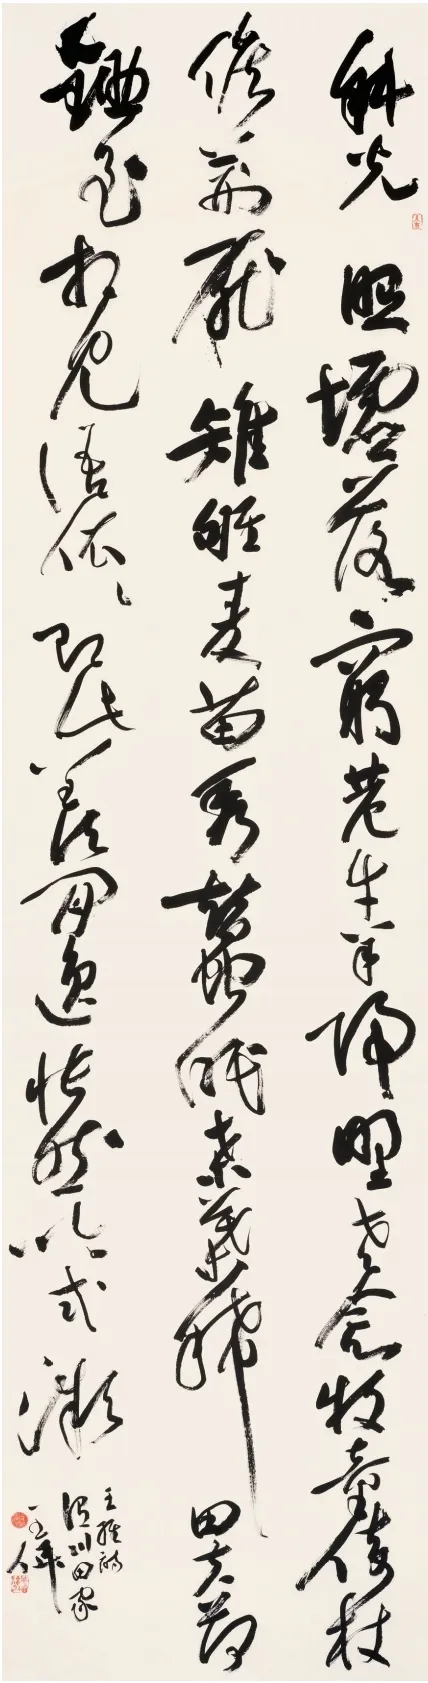 斜光照墟落窮巷牛羊歸野老念牧童倚杖
候荊扉雉雊麦苗秀蠶眠桑葉稀田夫荷
鋤至相見語依々即此羨閒逸悵然吟式微
王維詩
渭川田家